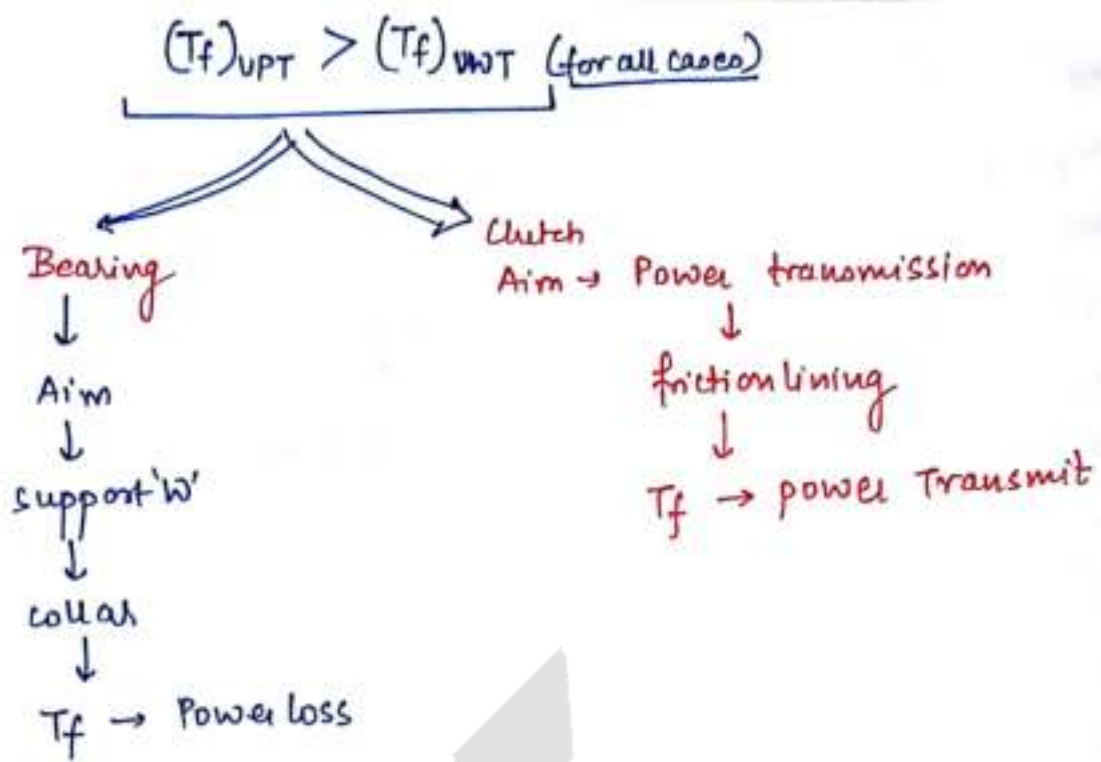 (Tf)UPT > (Tf)UWT (for all cases)
Bearing
↓
Aim
↓
support 'W'
↓
collar
↓
Tf → Power loss
Clutch
Aim → Power transmission
↓
friction lining
↓
Tf → power Transmit